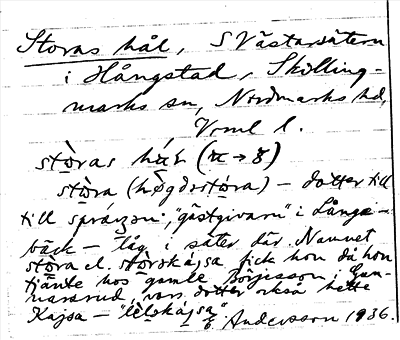 Storas hål, S Västarsätern
i Hångstad, Skilling-
marks sn, Nordmarks hd,
Vrml l.
störas
störa (högdsstöra) – dotter till
till språzson, "gästgivarn" i Långe-
bäck – låg i säter där. Namnet
störa el. störskájsa fick hon då hon
tjänte hos gamle Börjesson i Gam-
marsrud, vars dotter också hette
Kajsa – "létskájsa".
E. Andersson 1936.